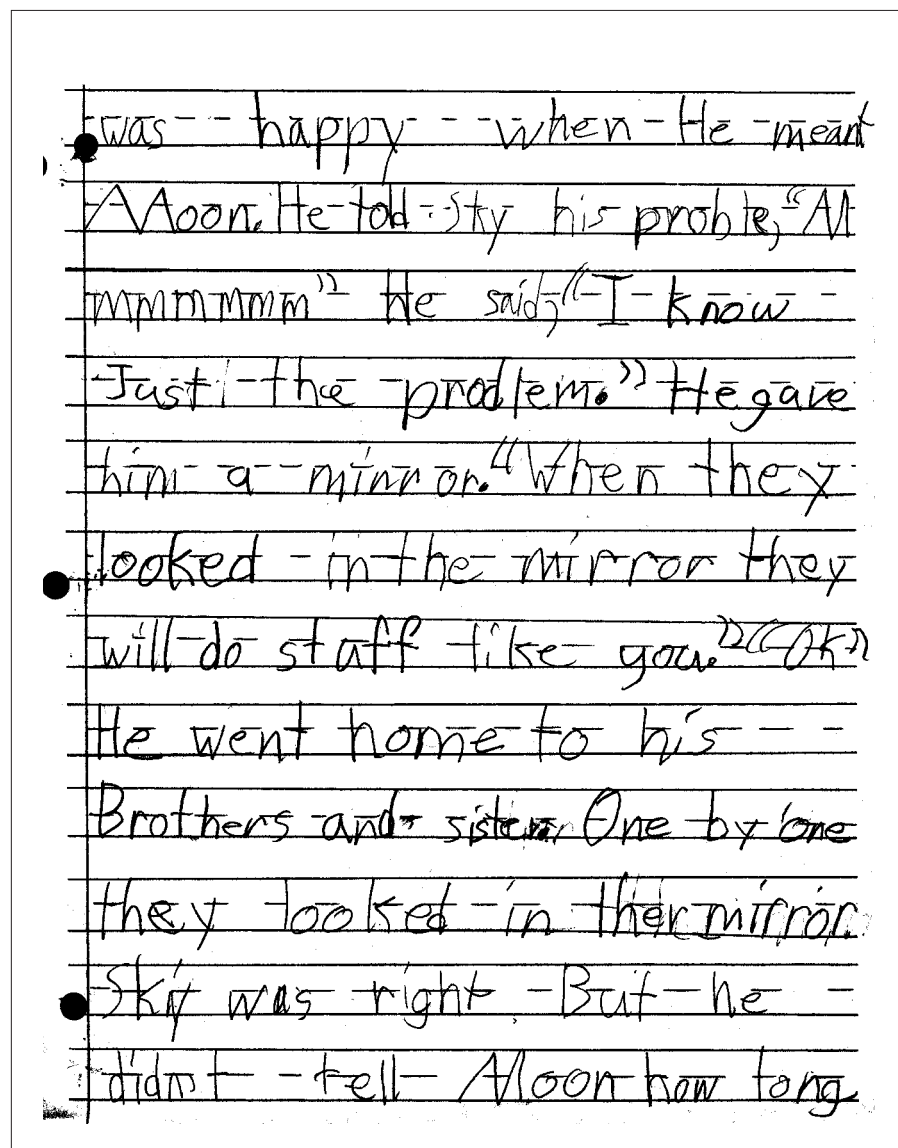 was happy when He meant
Moon. He told Sky his proble, "M
mmmmmm" He said, "I know
Just the problem." He gave
him a mirror. "When they
looked in the mirror they
will do staff like you." "Ok"
He went home to his
Brothers and sister. One by one
they looked in ther mirror.
Sky was right. But he
didnt tell Moon how long